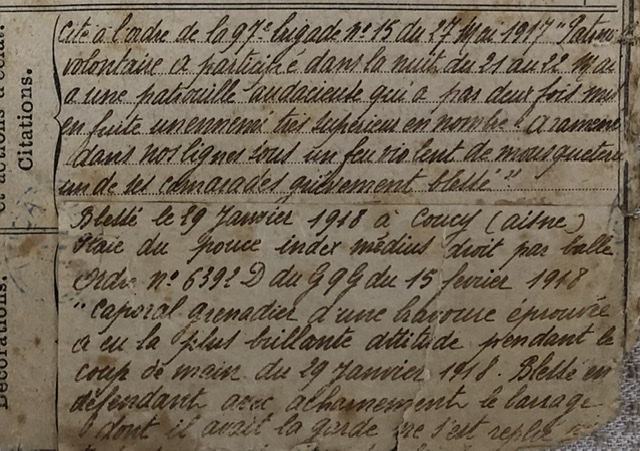 et actions d'éclat.
Citations.
Décorations.
Cité à l'ordre de la 97e brigade no 15 du 27 Mai 1917 "Patrou
volontaire a participé dans la nuit du 21 au 22 Mai
a une patrouille audacieuse qui a par deux fois mis
en fuite un ennemi très supérieur en nombre. A ramené
dans nos lignes sous un feu violent de mousqueterie
un de ses camarades grièvement blessé"
Blessé le 29 Janvier 1918 à Coucy (aisne)
Plaie du pouce index médius droit par balle
Ordre no 6392 D du GQG du 15 février 1918
"Caporal grenadier d'une bravoure éprouvée
a eu la plus brillante attitude pendant le
coup de main du 29 Janvier 1918. Blessé en
défendant avec acharnement le barrage
dont il avait la garde ne s'est replié